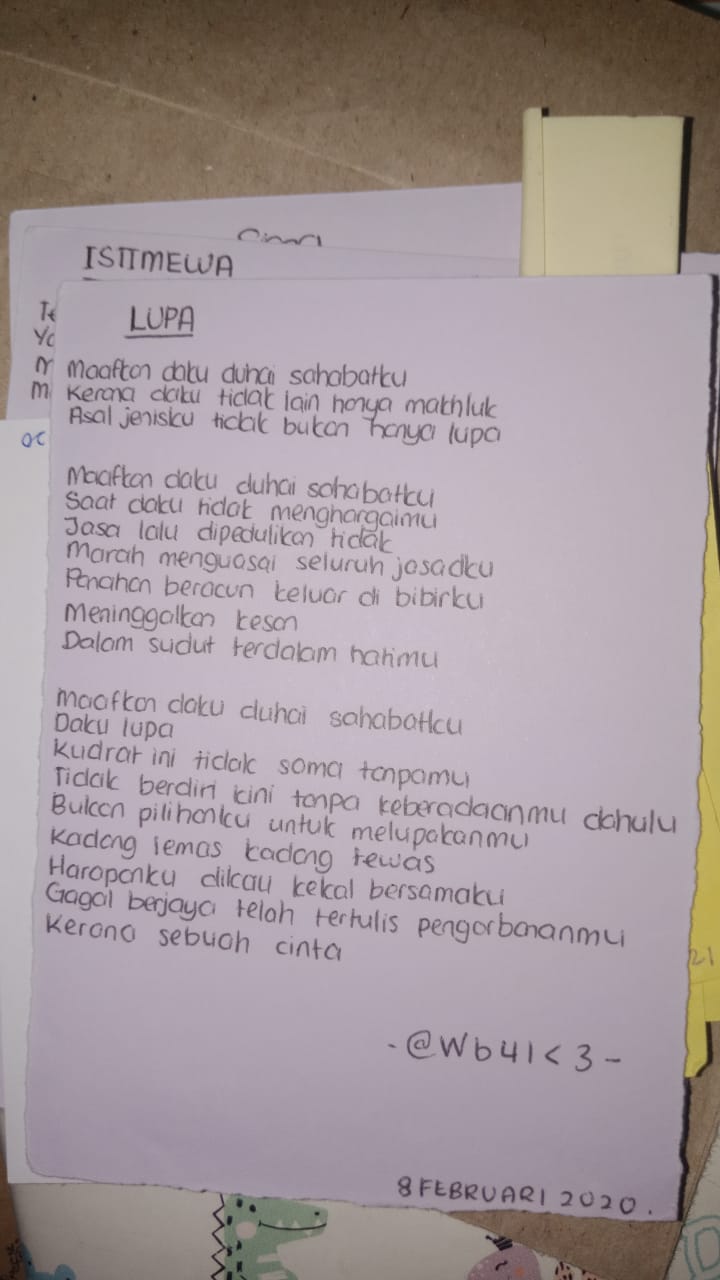 ISTIMEWA
LUPA
Maafkan daku duhai sahabatku
Kerana daku tidak lain hanya makhluk
Asal jenisku tidak bukan hanya lupa
Maafkan daku duhai sahabatku
Saat daku tidak menghargaimu
Jasa lalu dipedulikan tidak
Marah menguasai seluruh jasadku
Panahan beracun keluar di bibirku
Meninggalkan kesan
Dalam sudut terdalam hatimu
Maafkan daku duhai sahabatku
Daku lupa
Kudrat ini tidak sama tanpamu
Tidak berdiri kini tanpa keberadaanmu dahulu
Bukan pilihanku untuk melupakanmu
Kadang lemas kadang tewas
Harapanku dikau kekal bersamaku
Gagal berjaya telah tertulis pengorbananmu
Kerana sebuah cinta
-@Wb41<3-
8 FEBRUARI 2020.